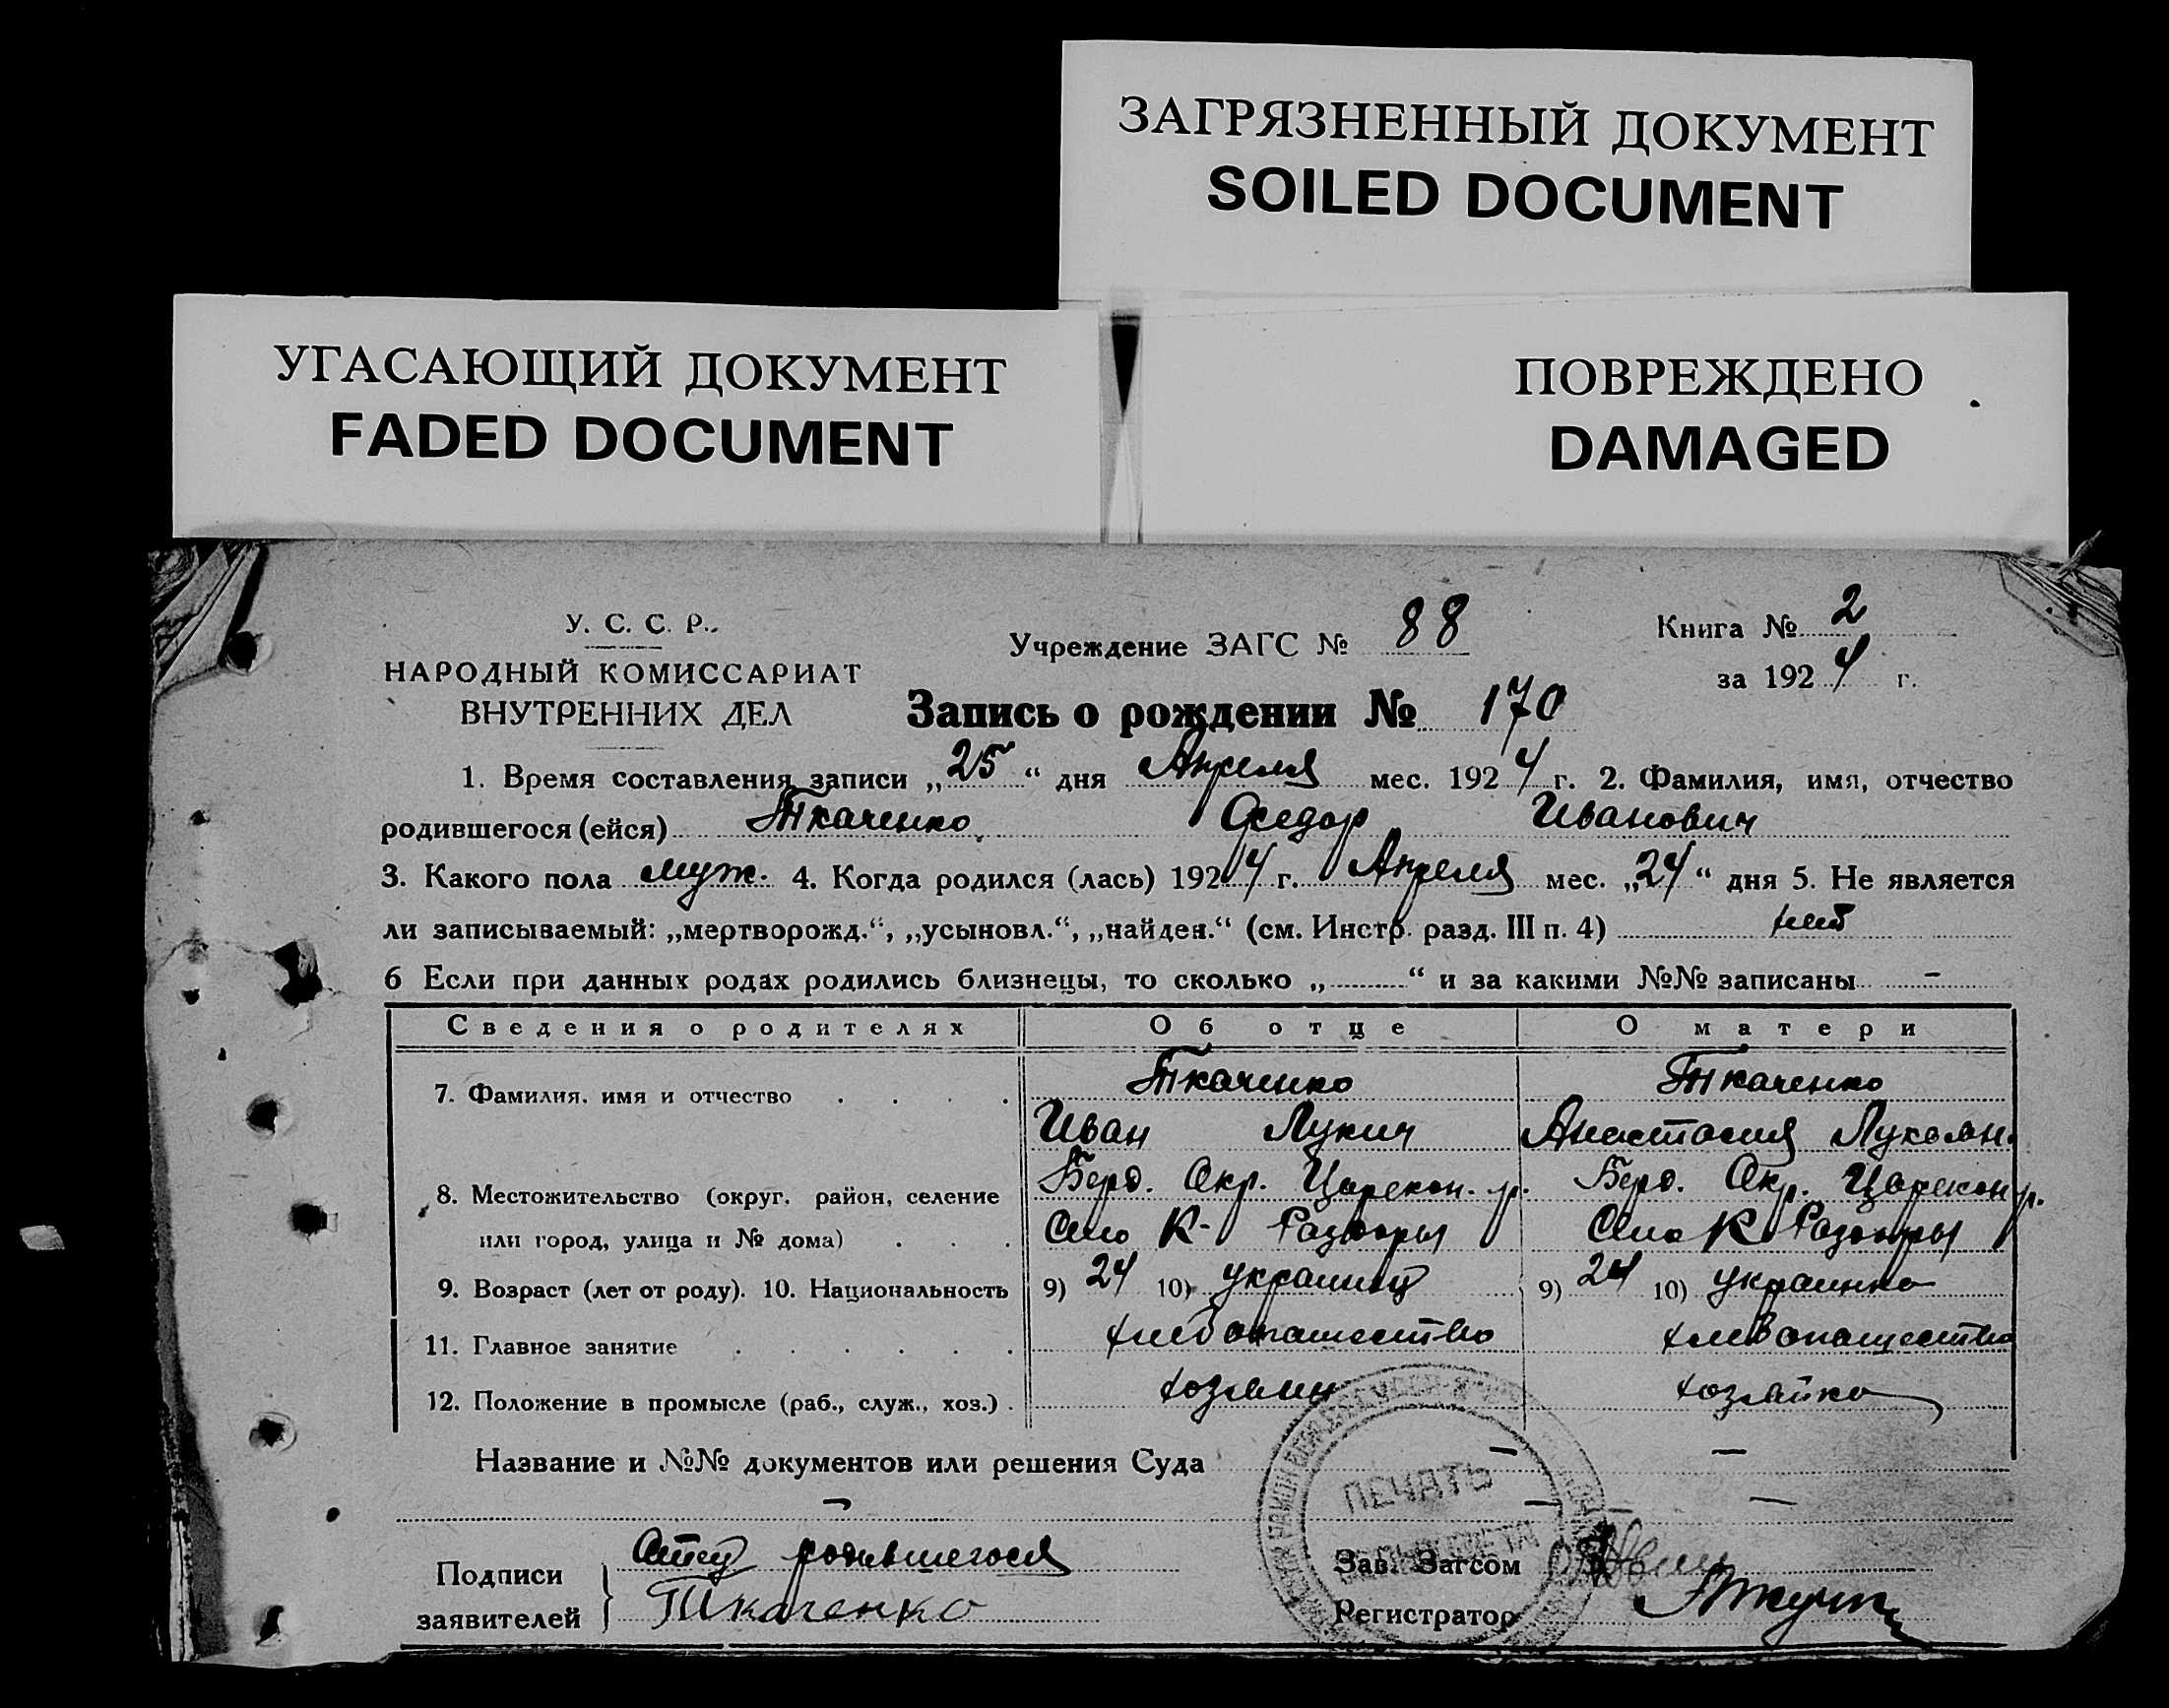 ЗАГРЯЗНЕННЫЙ ДОКУМЕНТ
SOILED DOCUMENT
УГАСАЮЩИЙ ДОКУМЕНТ
FADED DOCUMENT
ПОВРЕЖДЕНО
DAMAGED
У. С. С. Р.
НАРОДНЫЙ КОМИССАРИАТ
ВНУТРЕННИХ ДЕЛ
Учреждение ЗАГС № 88
Книга № 2
за 1924 г.
Запись о рождении № 170
1. Время составления записи „25“ дня Апреля мес. 1924 г. 2. Фамилия, имя, отчество
родившегося (ейся) Ткаченко Федор Иванович
3. Какого пола муж. 4. Когда родился (лась) 1924 г. Апреля мес. „24“ дня 5. Не является
ли записываемый: „мертворожд.“, „усыновл.“, „найден.“ (см. Инстр. разд. III п. 4) нет
6 Если при данных родах родились близнецы, то сколько „ “ и за какими №№ записаны -
Сведения о родителях Об отце О матери
7. Фамилия, имя и отчество Ткаченко Ткаченко
Иван Лукич Анастасия Лукьян.
8. Местожительство (округ, район, селение Берд. Окр. Царекон. р. Берд. Окр. Царекон р.
или город, улица и № дома) Село К- Раздоры Село К Раздоры
9. Возраст (лет от роду). 10. Национальность 9) 24 10) украинец 9) 24 10) украинка
11. Главное занятие хлебопашество хлебопашество
12. Положение в промысле (раб., служ., хоз.) хозяин хозяйка
Название и №№ документов или решения Суда — —
Подписи заявителей } Отец родившегося
Ткаченко
ПЕЧАТЬ
Зав. Загсом
Регистратор